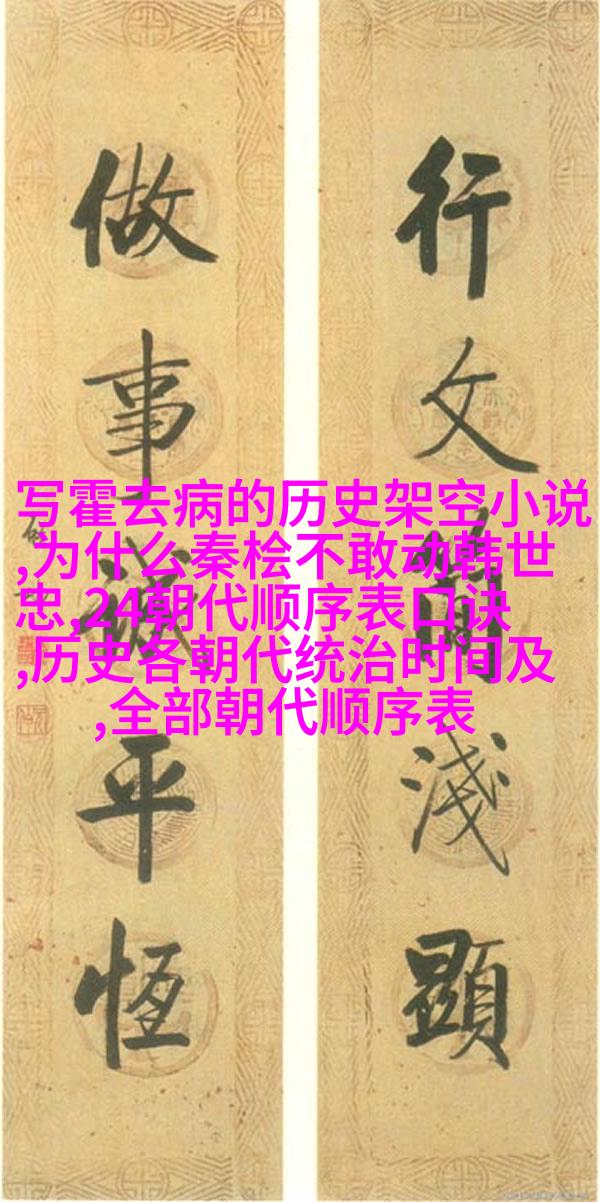 行文簡淺顯
做事誠平恆
写霍去病的历史架空小说
,为什么秦桧不敢动韩世
忠,24朝代顺序表口诀
,历史各朝代统治时间及
,全部朝代顺序表